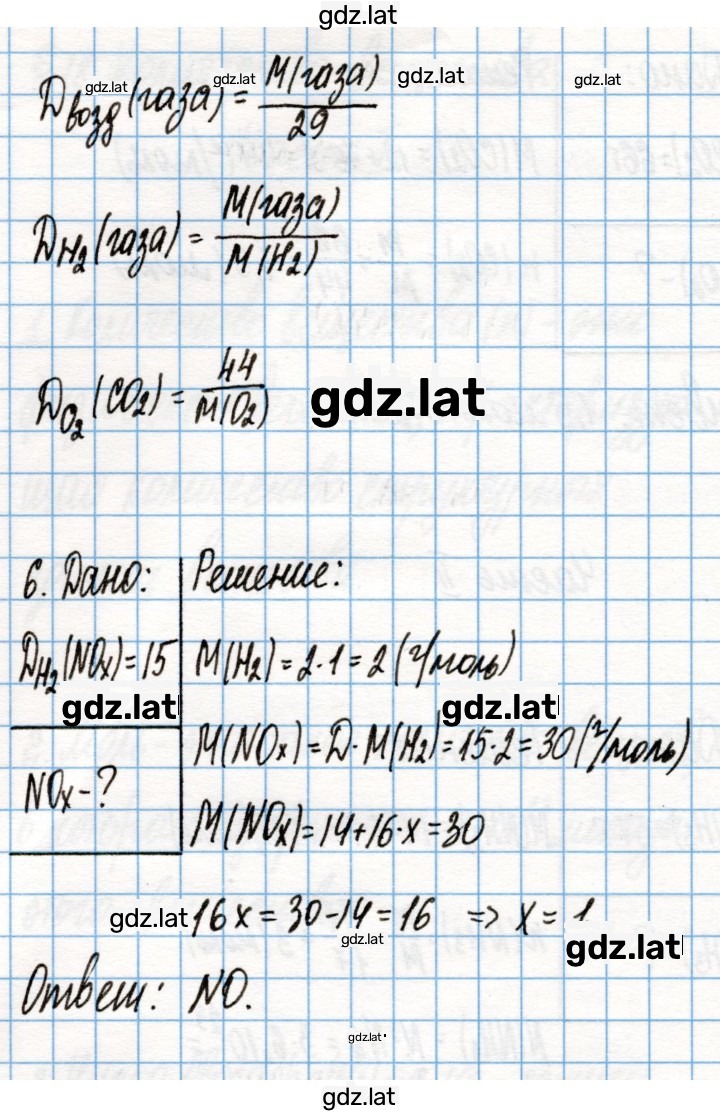 gdz.lat
Dвозд(газа) = M(газа) / 29
gdz.lat gdz.lat gdz.lat gdz.lat
DH₂(газа) = M(газа) / M(H₂)
DO₂(CO₂) = 44 / M(O₂)
gdz.lat
6. Дано:
DH₂(NOx)=15
gdz.lat
NOx - ?
Решение:
M(H₂) = 2·1 = 2 (г/моль)
gdz.lat
M(NOx) = D·M(H₂) = 15·2 = 30 (г/моль)
M(NOx) = 14+16·x = 30
gdz.lat 16x = 30-14 = 16 => x = 1
gdz.lat gdz.lat
Ответ: NO.
gdz.lat
gdz.lat